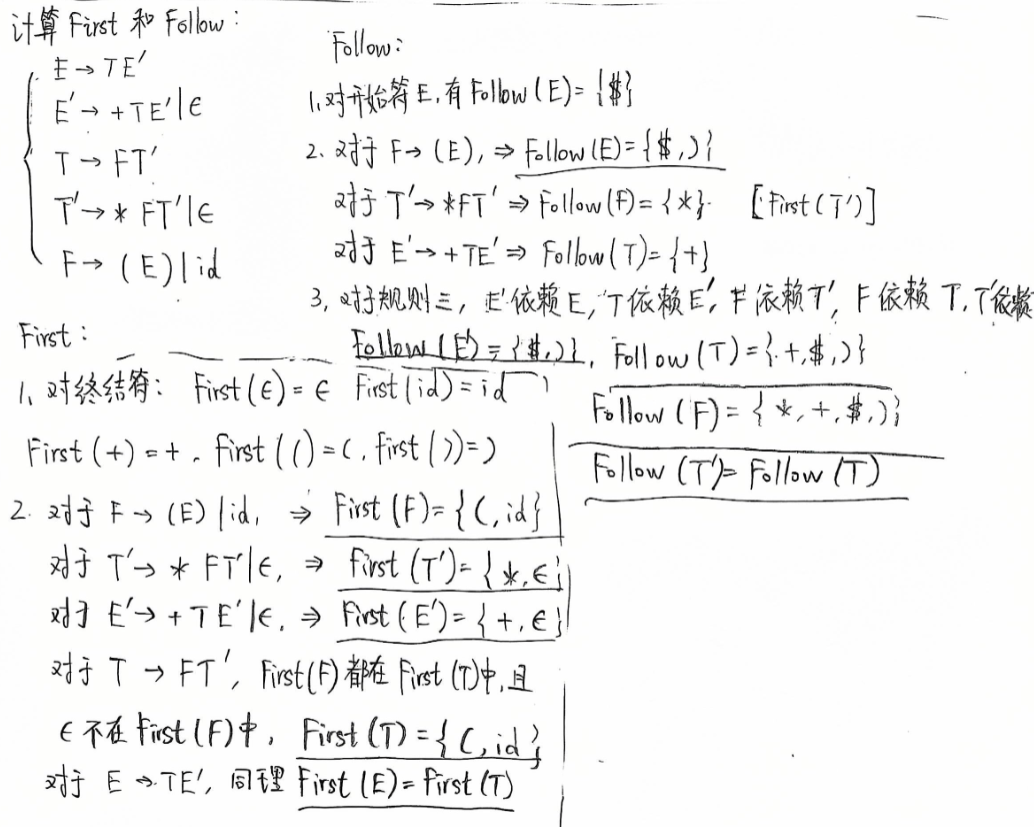 计算 First 和 Follow:
E → TE′
E′ → +TE′|ϵ
T → FT′
T′ → * FT′|ϵ
F → (E)|id
First:
1、对终结符: First(ϵ)=ϵ First(id)=id
First(+)=+. First(()=(, First())=)
2. 对于 F → (E)|id, ⇒ First(F)={(,id}
对于 T′ → * FT′|ϵ, ⇒ First(T′)={*,ϵ}
对于 E′ → +TE′|ϵ, ⇒ First(E′)={+,ϵ}
对于 T → FT′, First(F)都在First(T)中,且
ϵ不在First(F)中, First(T)={(,id}
对于 E → TE′, 同理 First(E)=First(T)
Follow:
1、对开始符E,有Follow(E)={$}
2、对于 F → (E), ⇒ Follow(E)={$,)}
对于 T′ → *FT′ ⇒ Follow(F)={*}. [First(T′)]
对于 E′ → +TE′ ⇒ Follow(T)={+}
3, 对于规则三, E′依赖E, T依赖E′, F依赖T′, F依赖T, T′依赖
Follow(E′)={$,)}, Follow(T)={+,$,)}
Follow(F)={*,+,$,)}
Follow(T′)=Follow(T)